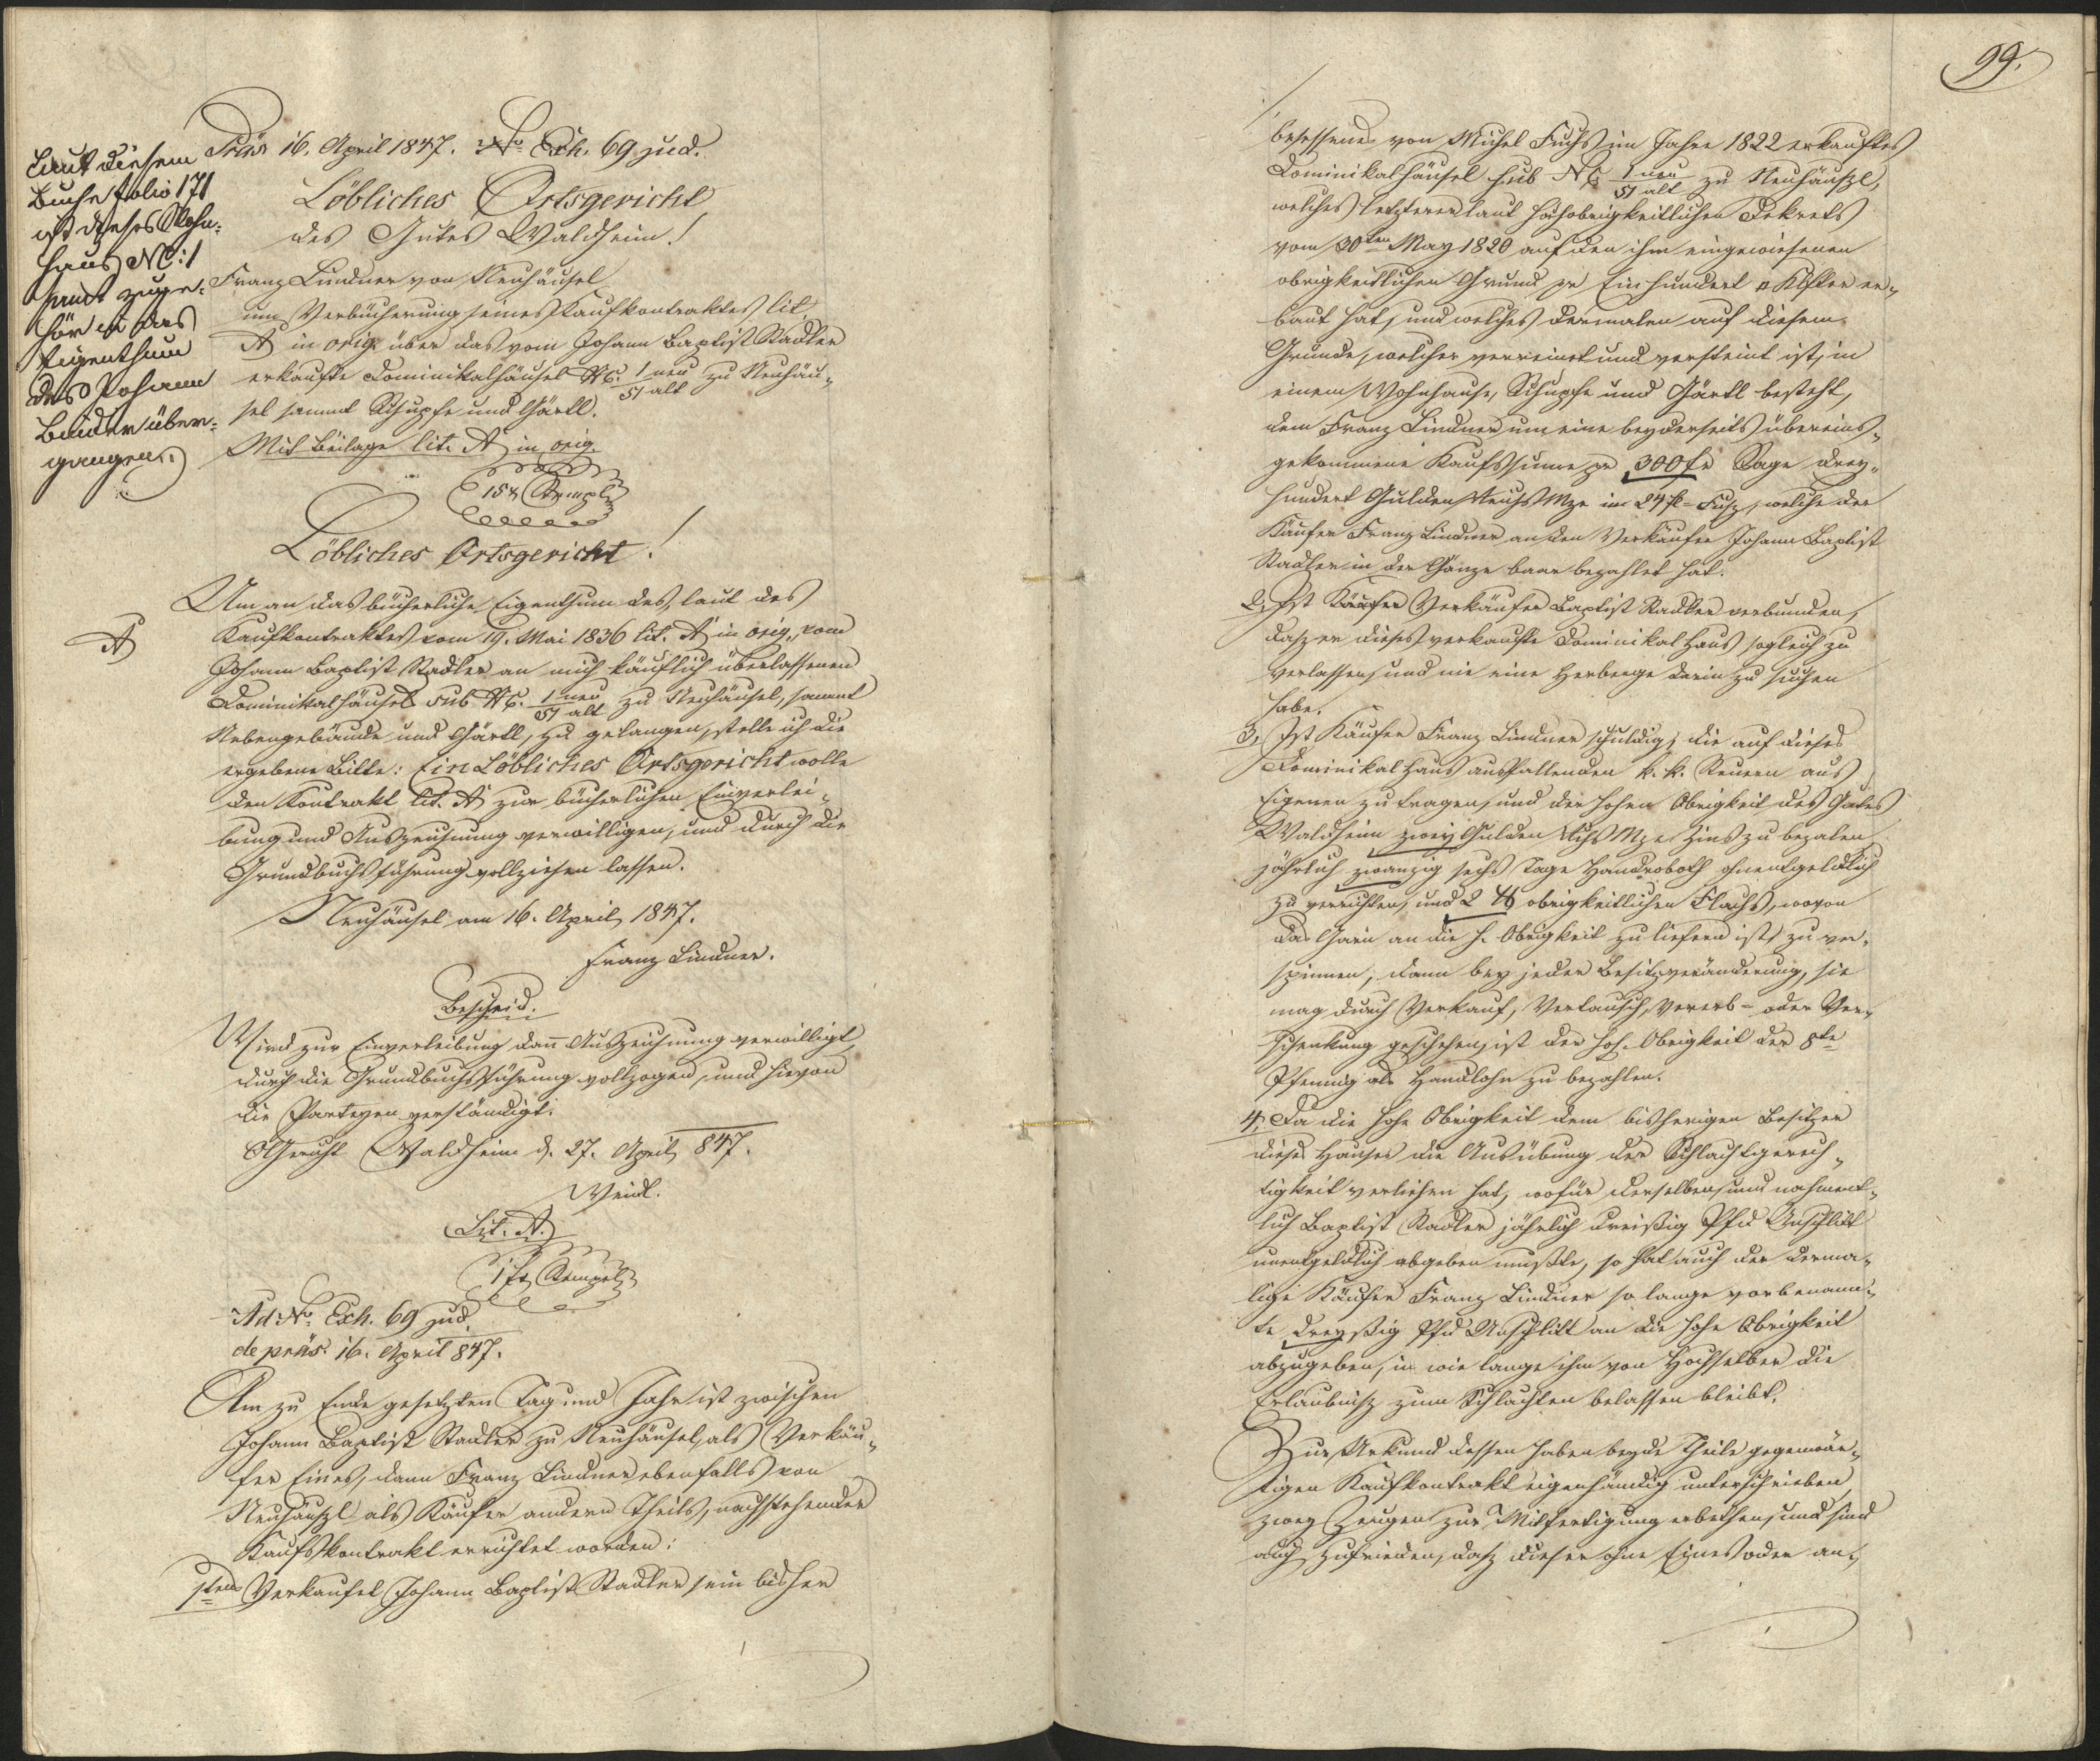 Laut diesem
Buche folio 171
ist dieses Wohn-
haus NC: 1
samt zuge-
hör in das
Eigenthum
des Johann
Binder über-
gangen.
Präs 16. April 1847. No. Exh. 69 jud.
Löbliches Ortsgericht
des Gutes Waldheim!
Franz Lindner von Neuhäusel
um Verbücherung seines Kaufkontraktes lit.
A in orig. über das vom Johann Baptist Stadler
erkaufte Dominikalhäusel NC. 1 neu / 51 alt zu Neuhäu-
sel sammt Schupfe und Gärtl.
Mit Beilage lit. A in orig.
15 x Stempl
Löbliches Ortsgericht!
Um an das bücherliche Eigenthum des, laut des
A
Kaufkontraktes vom 19. Mai 1836 lit. A in orig., vom
Johann Baptist Stadler an mich käuflich überlassenen
Dominikalhäusels sub NC. 1 neu / 51 alt zu Neuhäusel, sammt
Nebengebäude und Gärtl, zu gelangen, stelle ich die
ergebene Bitte: Ein Löbliches Ortsgericht wolle
den Kontrakt lit. A zur bücherlichen Einverlei-
bung und Auszeichnung verwilligen, und durch die
Grundbuchsführung vollziehen lassen.
Neuhäusel am 16. April 1847.
Franz Lindner.
Bescheid.
Wird zur Einverleibung dann Auszeichnung verwilligt,
durch die Grundbuchsführung vollzogen, und hievon
die Parteyen verständigt.
OGericht Waldheim d. 27. April 847.
Weidl.
Lit. A.
1 f Stempel
Ad No. Exh. 69 jud.
de präs. 16. April 847.
Am zu Ende gesetzten Tag und Jahr ist zwischen
Johann Baptist Stadler zu Neuhäusel, als Verkäu-
fer Eines, dann Franz Lindner ebenfalls von
Neuhäuszl als Käufer andern Theils, nachstehender
Kaufskontrakt errichtet worden:
1tens Verkaufet Johann Baptist Stadler sein bisher
99.
besessenes von Michel Fuchs im Jahre 1822 erkauftes
Dominikalhäusel sub NC 1 neu / 51 alt zu Neuhäuszl,
welches letzterer laut hochobrigkeitlichen Dekrets
vom 30ten May 1820 auf den ihm eingewiesenen
obrigkeitlichen Grund pr Einhundert □ Klfter er-
baut hat, und welches dermalen auf diesem
Grunde, welcher verreint und versteint ist, in
einem Wohnhause, Schupfe und Gärtl besteht,
dem Franz Lindner um eine beyderseits übereins-
gekommene Kaufssumme pr 300 fr Sage drey-
hundert Gulden Mze im 24 fl-Fusz, welche der
Käufer Franz Lindner an den Verkäufer Johann Baptist
Stadler in der Gänze baar bezahlet hat.
2, Ist Käufer Verkäufer Baptist Stadler verbunden,
dasz er dieses verkaufte Dominikal Haus sogleich zu
verlassen, und nie eine Herberge darin zu suchen
habe.
3, Ist Käufer Franz Lindner schuldig, die auf dieses
Dominikal Haus ausfallenden k. k. Steuern aus
Eigenen zu tragen, und der hohen Obrigkeit des Gutes
Waldheim zwey Gulden Mze Zins zu bezalen,
jährlich zwanzig sechs Tage Handroboth unentgeldlich
zu verrichten, und 2 ℔ obrigkeitlichen Flachs, wovon
das Garn an die h. Obrigkeit zu liefern ist, zu ver-
spinnen, dann bey jeder Besitzveränderung, sie
mag durch Verkauf, Vertausch, Vererb- oder Ver-
schenkung geschehen, ist der hoh. Obrigkeit der 8te
Pfennig als Handlohn zu bezahlen.
4, Da die hohe Obrigkeit dem bisherigen Besitzer
dieses Hauses die Ausübung der Schlachtgerech-
tigkeit verliehen hat, wofür derselben, und nahment-
lich Baptist Stadler jährlich dreißig Pfd Unschlitt
unentgeldlich abgeben mußte, so hat auch der derma-
lige Käufer Franz Lindner so lange vorbenann-
te dreyßig Pfd Unschlitt an die hohe Obrigkeit
abzugeben, in wie lange ihm von Hochselber die
Erlaubnisz zum Schlachten belassen bleibt.
Zur Urkund dessen haben beyde Theile gegenwär-
tigen Kaufkontrakt eigenhändig unterschrieben,
zwey Zeugen zur Mitfertigung erbethen, und sind
auch zufrieden, dasz dieser ohne Eines oder an-